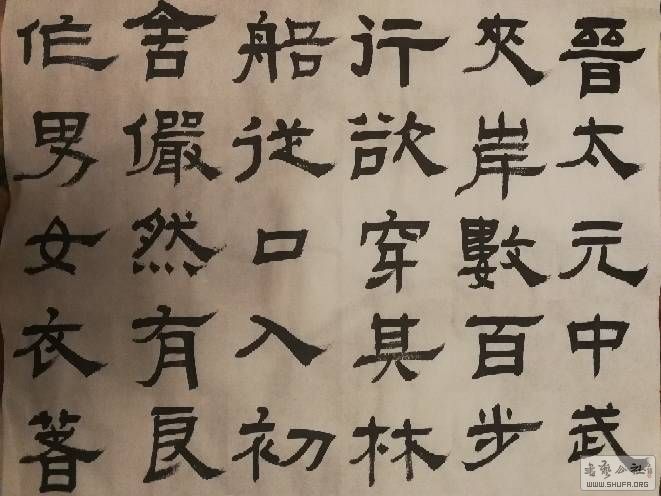 晉太元中武
夾岸數百步
行欲穿其林
船從口入初
舍儼然有良
作男女衣著
WWW.SHUFA.ORG